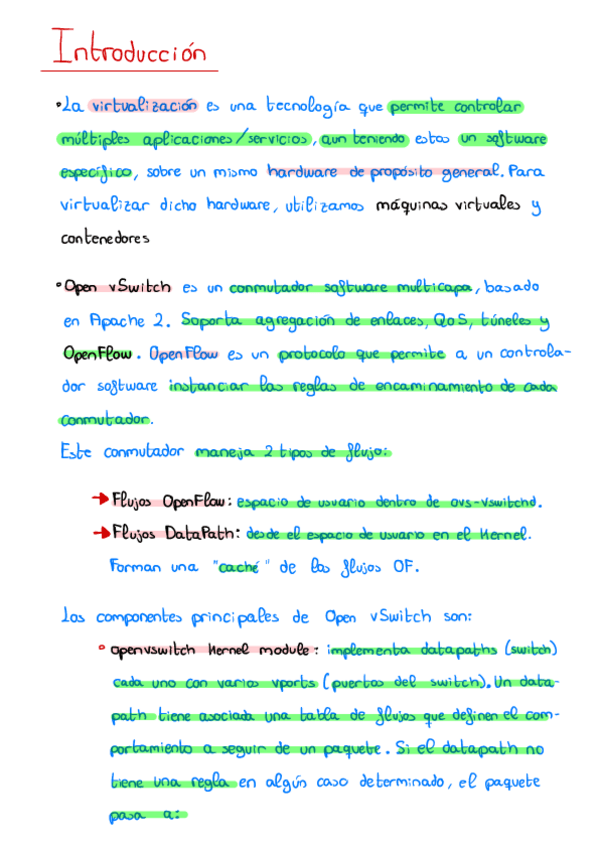 Introducción
•La virtualización es una tecnología que permite controlar
múltiples aplicaciones/servicios, aun teniendo estos un software
específico, sobre un mismo hardware de propósito general. Para
virtualizar dicho hardware, utilizamos máquinas virtuales y
contenedores
•Open vSwitch es un conmutador software multicapa, basado
en Apache 2. Soporta agregación de enlaces, QoS, túneles y
OpenFlow. OpenFlow es un protocolo que permite a un controla-
dor software instanciar las reglas de encaminamiento de cada
conmutador.
Este conmutador maneja 2 tipos de flujo:
→ Flujos OpenFlow: espacio de usuario dentro de ovs-vswitchd.
→ Flujos DataPath: desde el espacio de usuario en el Kernel.
Forman una "caché" de los flujos OF.
Los componentes principales de Open vSwitch son:
• openvswitch Kernel module: implementa datapaths (switch)
cada uno con varios vports (puertos del switch). Un data-
path tiene asociada una tabla de flujos que definen el com-
portamiento a seguir de un paquete. Si el datapath no
tiene una regla en algún caso determinado, el paquete
pasa a: